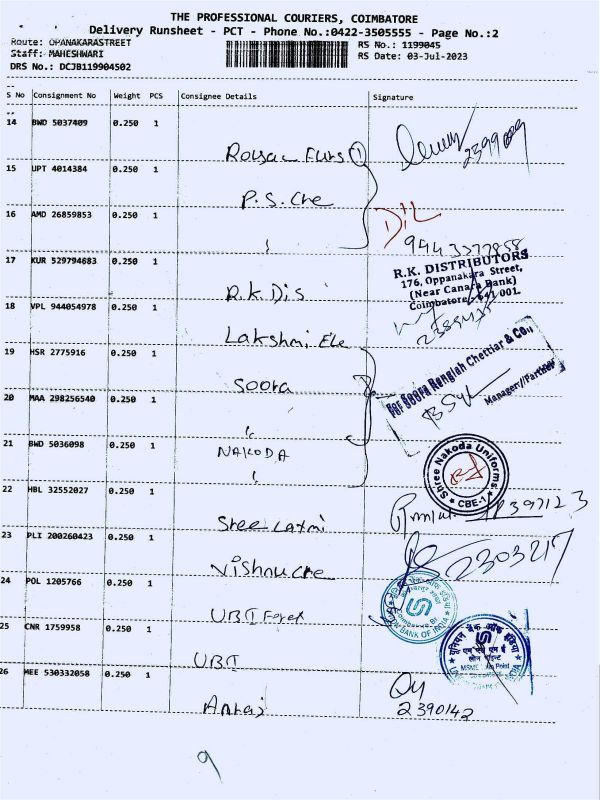 THE PROFESSIONAL COURIERS, COIMBATORE
Delivery Runsheet - PCT - Phone No.:0422-3505555 - Page No.:2
Route: OPANAKARASTREET
RS No.: 1199045
Staff: MAHESHWARI
RS Date: 03-Jul-2023
DRS No.: DCJB119904502
S No Consignment No Weight PCS Consignee Details Signature
14 BWD 5037409 0.250 1
15 UPT 4014384 0.250 1
P.S. Che
16 AMD 26859853 0.250 1
9443377858
17 KUR 529794883 0.250 1
R.K.Dis
R.K. DISTRIBUTORS
176, Oppanakara Street,
(Near Canara Bank)
Coimbatore - 641 001.
18 VPL 944054978 0.250 1
Lakshmi Ele
19 HSR 2775916 0.250 1
Soora
For Soora Rengiah Chettiar & Co.,
Manager//Partner
20 MAA 298256540 0.250 1
21 BWD 5036098 0.250 1
NAKODA
Shree Nakoda Uniforms
CBE-1
22 HBL 32552027 0.250 1
Shree Laxmi
23 PLI 200260423 0.250 1
Vishnu Che
2303217
24 POL 1205766 0.250 1
UBI Forex
BANK OF INDIA
25 CNR 1759958 0.250 1
UBI
यूनियन बैंक ऑफ इंडिया
26 MEE 530332058 0.250 1
2390142
9